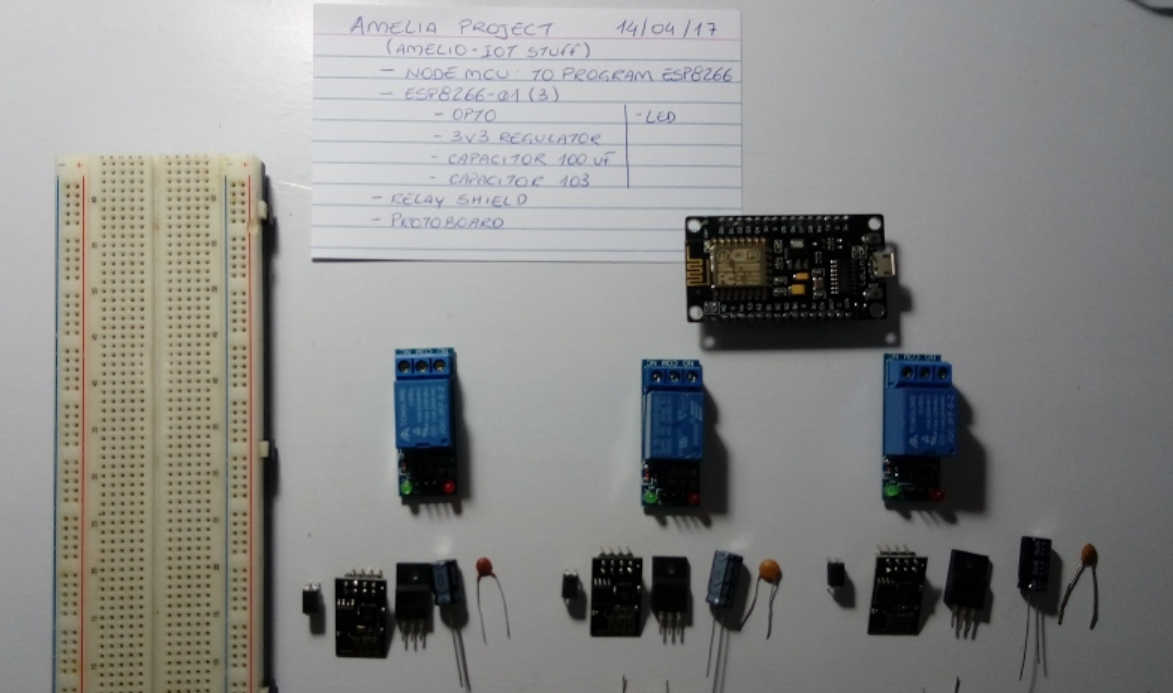 AMELIA PROJECT 14/04/17
(AMELIO-IOT STUFF)
- NODE MCU: TO PROGRAM ESP8266
- ESP8266-01 (3)
- OPTO - LED
- 3V3 REGULATOR
- CAPACITOR 100 UF
- CAPACITOR 103
- RELAY SHIELD
- PROTOBOARD
NO COM NC
NO COM NC
NO COM NC